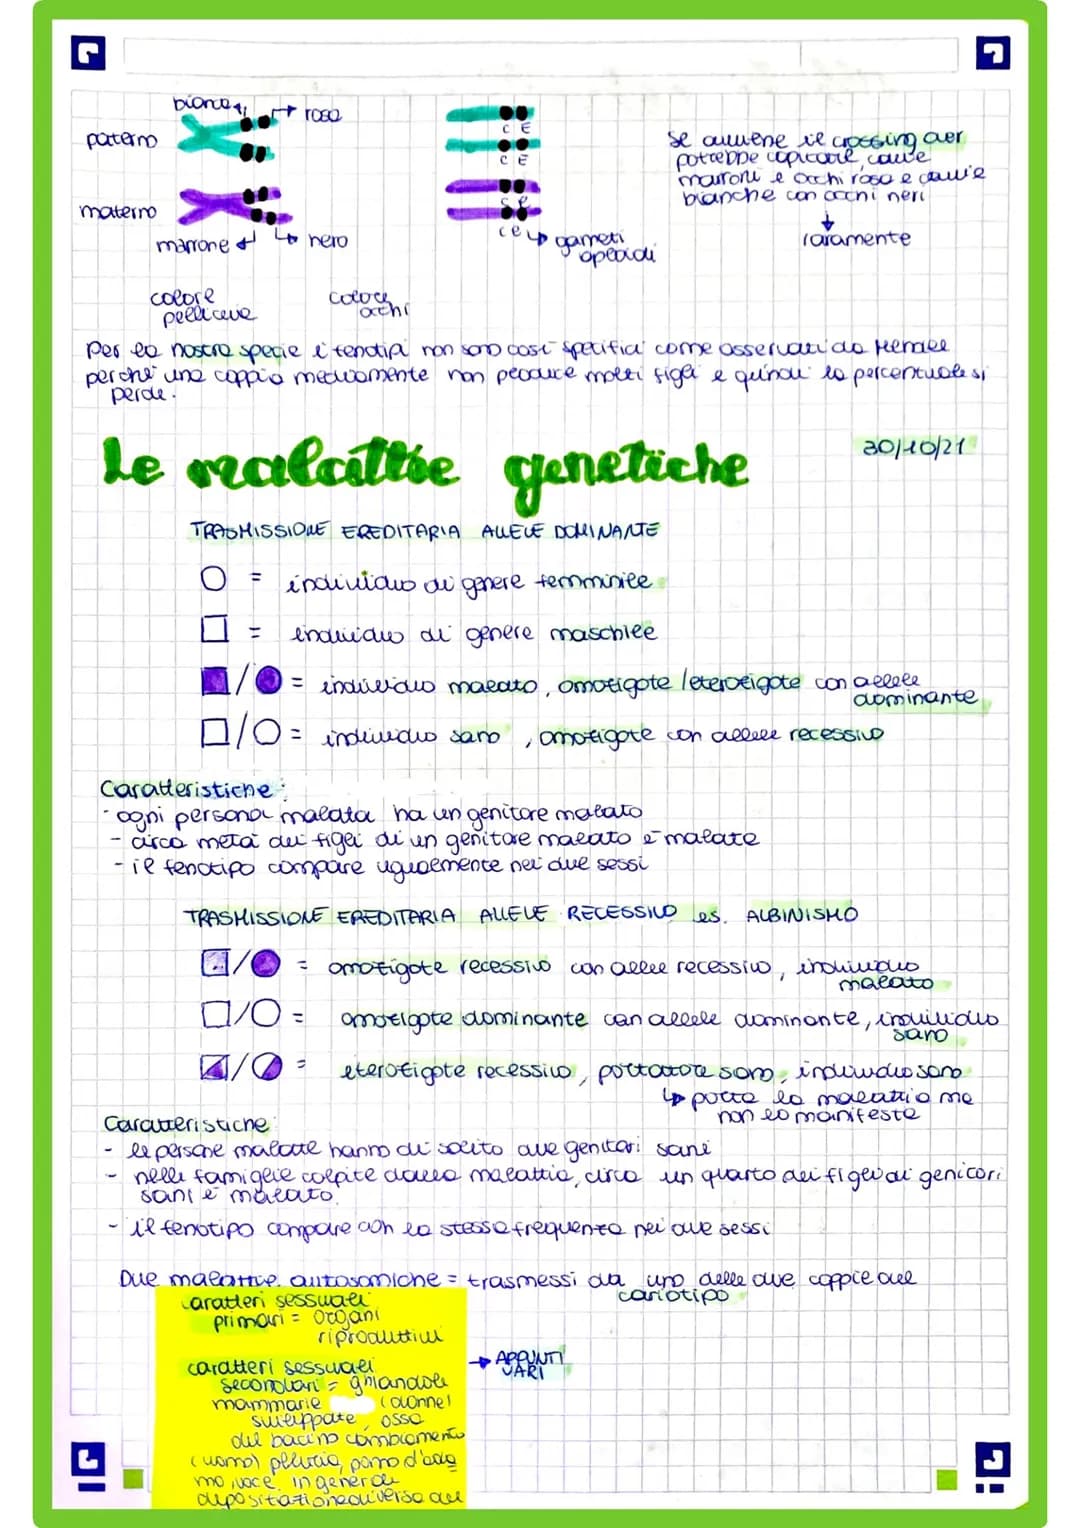 bianco → rosa
paterno
C E
C E
materno
c e
c e → gameti
aploidi
marrone ← → nero
colore
pelliccia
colore
occhi
Se avviene il crossing over
potrebbe capitare, cavie
marroni e occhi rosa e cavie
bianche con occhi neri
↓
raramente
Per la nostra specie i fenotipi non sono così specifici come osservati da Mendel
perché una coppia mediamente non produce molti figli e quindi la percentuale si
perde.
Le malattie genetiche
30/10/21
TRASMISSIONE EREDITARIA ALLELE DOMINANTE
= individuo di genere femminile
= individuo di genere maschile
/ = individuo malato, omozigote/eterozigote con allele
dominante
/ = individuo sano, omozigote con allele recessivo
Caratteristiche:
- ogni persona malata ha un genitore malato
- circa metà dei figli di un genitore malato è malate
- il fenotipo compare ugualmente nei due sessi
TRASMISSIONE EREDITARIA ALLELE RECESSIVO es. ALBINISMO
/ = omozigote recessivo con allele recessivo, individuo
malato
/ = omozigote dominante con allele dominante, individuo
sano
/ = eterozigote recessivo, portatore sano, individuo sano
↳ porta la malattia ma
non la manifesta
Caratteristiche:
- le persone malate hanno di solito due genitori sani
- nelle famiglie colpite dalla malattia, circa un quarto dei figli di genitori
sani è malato.
- il fenotipo compare con la stessa frequenza nei due sessi
Due malattie autosomiche = trasmessi da uno delle due coppie del
cariotipo
caratteri sessuali
primari = organi
riproduttivi
caratteri sessuali
secondari = ghiandole
mammarie (donne)
sviluppate, ossa
del bacino cambiamento
(uomo) peluria, pomo d'ada
mo, voce, in generale
depositazione diversa del
→ APPUNTI
VARI